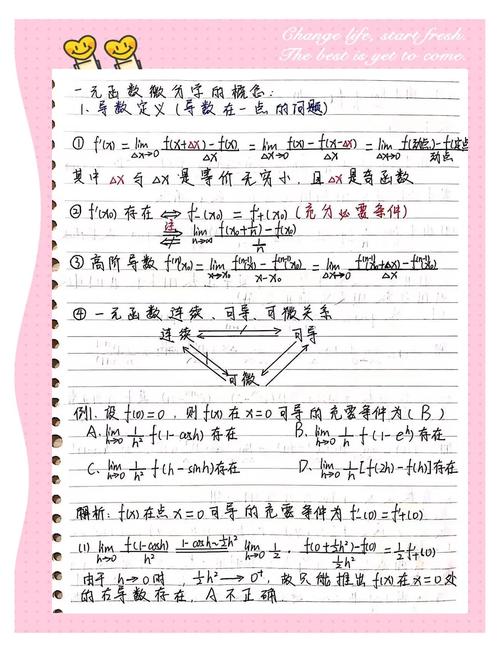 Change life, start fresh.
The best is yet to come.
一元函数微分学的概念:
1. 导数定义 (导数在一点的问题)
① f'(x) = lim_{Δx→0} f(x+Δx)-f(x)/Δx = lim_{Δx→0} f(x)-f(x-Δx)/Δx = lim_{Δx→0} f(动点)-f(定点)/动点
其中 Δx 与 Δx 是等价无穷小, 且 Δx 是奇函数
② f'(x₀) 存在 ⇔ f'₋(x₀) = f'₊(x₀) (充分必要条件)
注 lim_{n→∞} f(x₀+1/n)-f(x₀)/(1/n)
③ 高阶导数 f⁽ⁿ⁾(x₀) = lim_{x→x₀} f⁽ⁿ⁻¹⁾(x)-f⁽ⁿ⁻¹⁾(x₀)/x-x₀ = lim_{Δx→0} f⁽ⁿ⁻¹⁾(x₀+Δx)-f⁽ⁿ⁻¹⁾(x₀)/Δx
④ 一元函数连续、可导、可微关系
连续 可导
可微
例1. 设 f(0)=0, 则 f(x) 在 x=0 可导的充要条件为 (B)
A. lim_{h→0} 1/h² f(1-cosh) 存在 B. lim_{h→0} 1/h f(1-eʰ) 存在
C. lim_{h→0} 1/h² f(h-sinh) 存在 D. lim_{h→0} 1/h [f(2h)-f(h)] 存在
解析: f(x) 在点 x=0 可导的充要条件为 f'₋(0)=f'₊(0)
(1) lim_{h→0} f(1-cosh)/h² 1-cosh~½h² lim_{h→0} ½·f(0+½h²)-f(0)/½h² = ½f'₊(0)
由于 h→0时, ½h²→0⁺, 故只能推出 f(x) 在 x=0 处
的右导数存在, A 不正确.